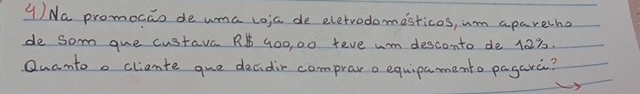 4) Na promoção de uma loja de eletrodomésticos, um aparelho
de som que custava R$ 400,00 teve um desconto de 12%.
Quanto o cliente que decidir comprar o equipamento pagará?